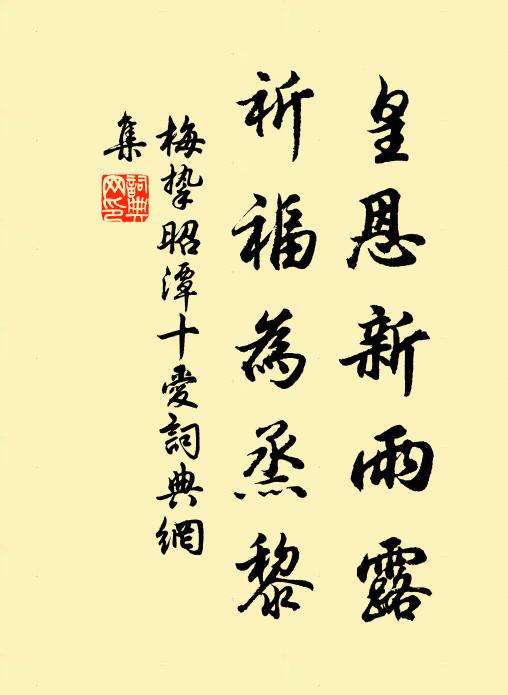 皇恩新雨露
祈福為烝黎
梅摯昭潭十愛詞典網
集
詞典
网印